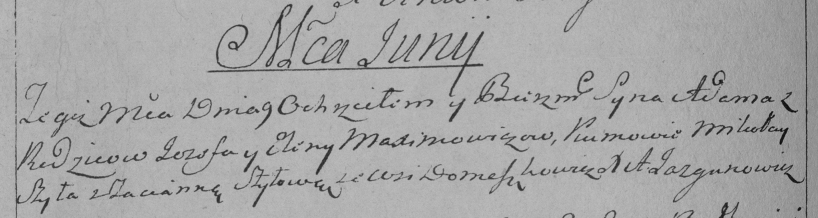 Mca Junij
Tegiż Mca Dnia 9 Ochrzciłem y Bierzm Syna Adama z
Rodzicow Jozefa y Eleny Maximowiczow, Kumowie Mikołay
Szyła z Tacianną Szyłową ze wsi Domeszkowicz X A Jazgunowicz